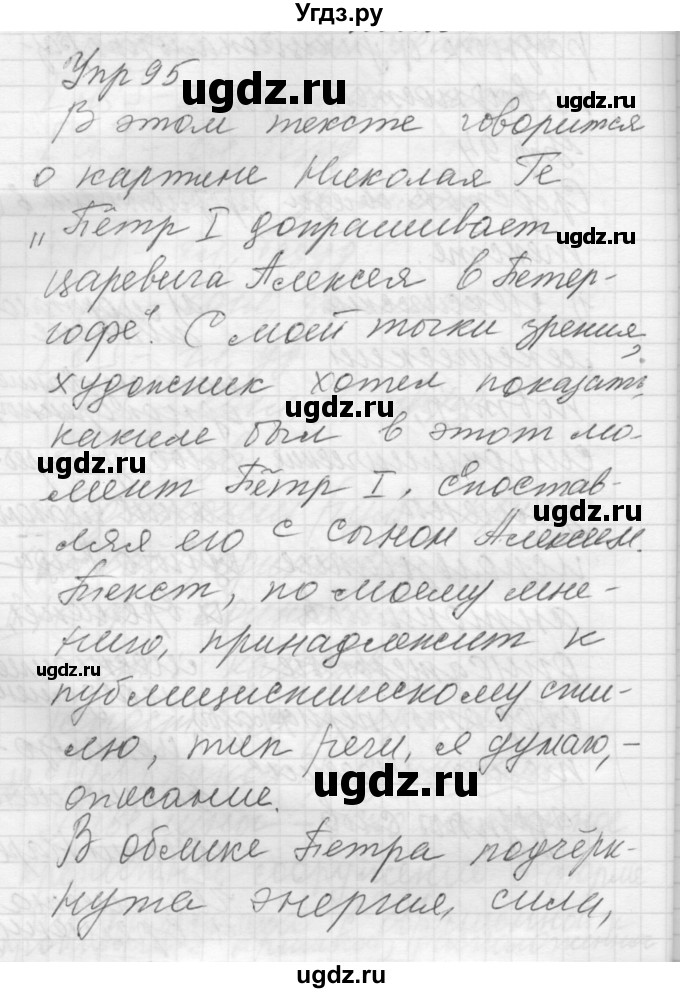 Угдз.ру
Упр 95
ugdz.ru
ugdz.ru
В этом тексте говорится
о картине Николая Ге
ugdz.ru
„Пётр I допрашивает
царевича Алексея в Петер-
гофе". С моей точки зрения,
художник хотел показать,
ugdz.ru
каким был в этот мо-
ugdz.ru
мент Пётр I, сопостав-
ugdz.ru
ляя его с сыном Алексеем.
Текст, по моему мне-
нию, принадлежит к
ugdz.ru
публицистическому сти-
лю, тип речи, я думаю, -
ugdz.ru
описание.
В облике Петра подчёрк-
нута энергия, сила,
ugdz.ru